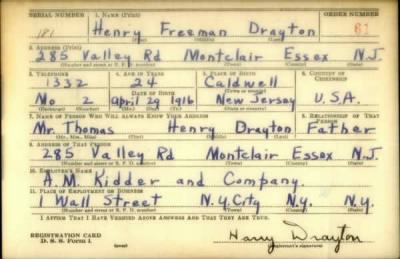 SERIAL NUMBER 1. NAME (Print) ORDER NUMBER
181 Henry Freeman Drayton 61
2. ADDRESS (Print)
285 Valley Rd Montclair Essex N.J.
3. TELEPHONE 4. AGE IN YEARS 5. PLACE OF BIRTH 6. COUNTRY OF CITIZENSHIP
1332 24 Caldwell
DATE OF BIRTH
Mo 2 April 29 1916 New Jersey U.S.A.
7. NAME OF PERSON WHO WILL ALWAYS KNOW YOUR ADDRESS 8. RELATIONSHIP OF THAT PERSON
Mr. Thomas Henry Drayton Father
(Mr., Mrs., Miss) (First) (Middle) (Last)
9. ADDRESS OF THAT PERSON
285 Valley Rd Montclair Essex N.J.
(Number and street or R. F. D. number) (Town) (County) (State)
10. EMPLOYER'S NAME
A.M. Kidder and Company.
11. PLACE OF EMPLOYMENT OR BUSINESS
1 Wall Street N.Y.City N.Y. N.Y.
(Number and street or R. F. D. number) (Town) (County) (State)
I AFFIRM THAT I HAVE VERIFIED ABOVE ANSWERS AND THAT THEY ARE TRUE.
REGISTRATION CARD
D. S. S. Form 1 (over) Harry Drayton
(Registrant's signature)